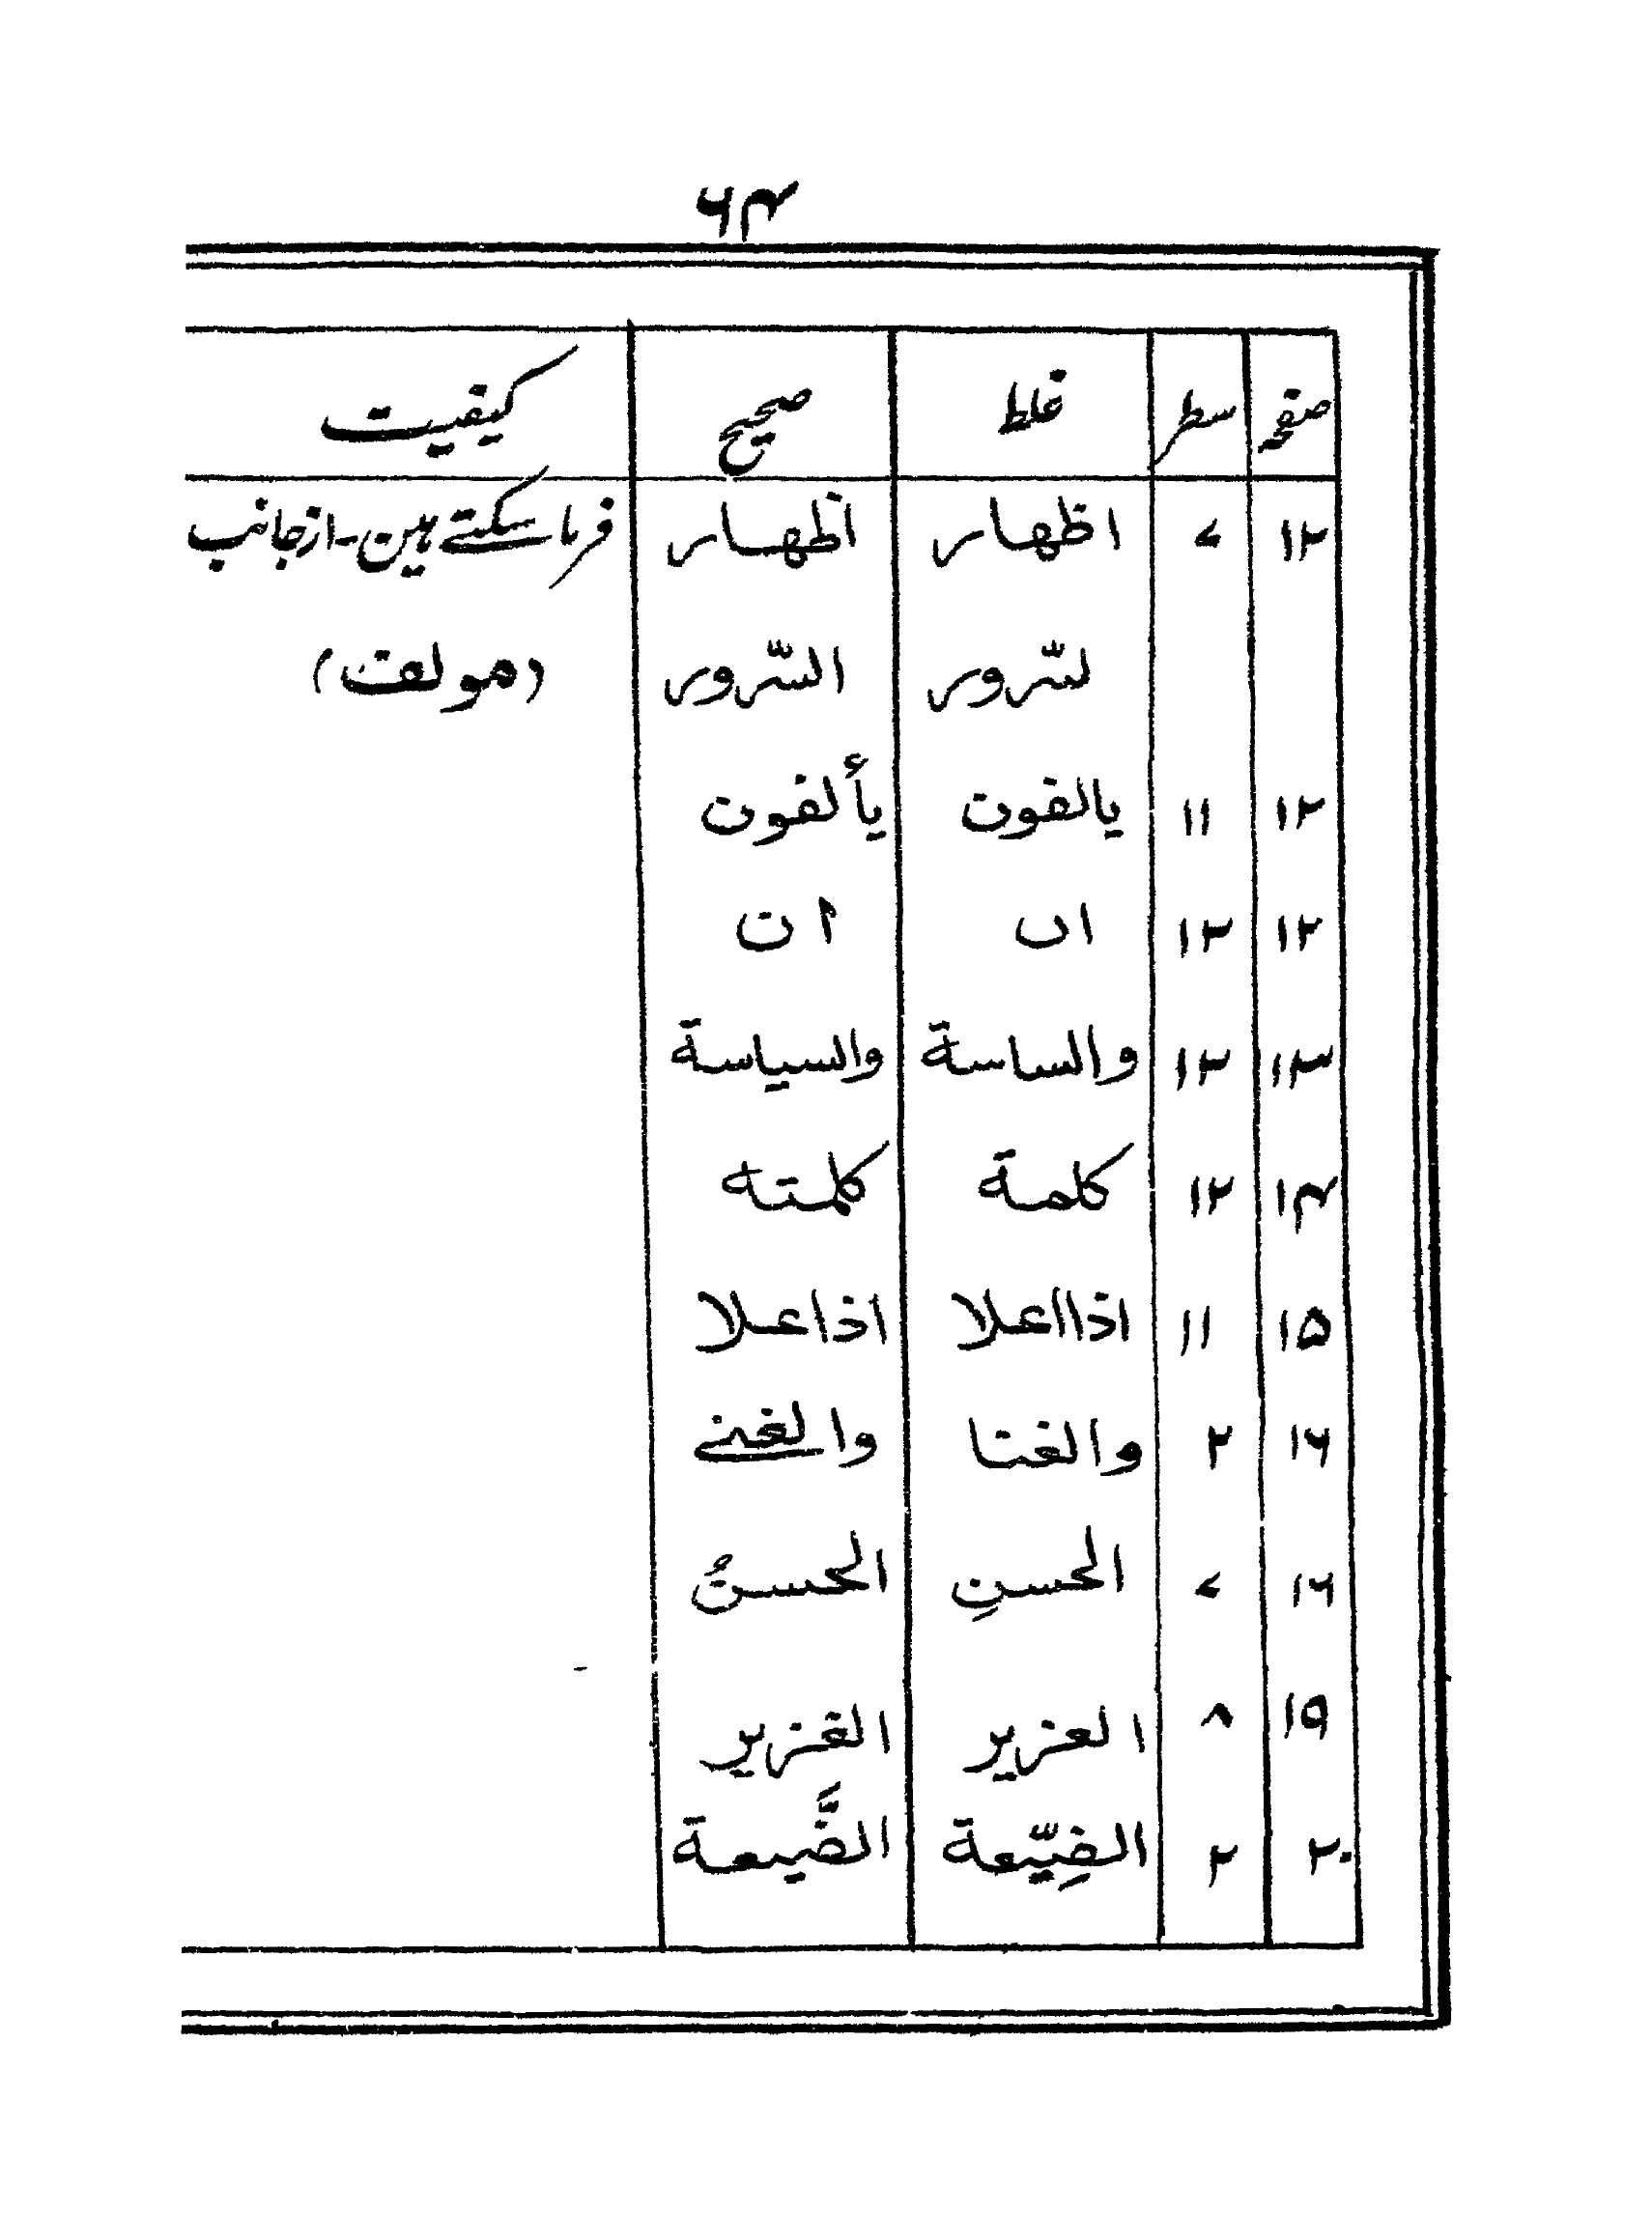 ۶۴
صفحہ سطر غلط صحیح کیفیت
۱۲ ۷ اظهار اظهار فرما سکتے ہین - از جانب
لسّرور السّرور (مولف)
۱۲ ۱۱ يالفون يألفون
۱۲ ۱۲ اں ان
۱۳ ۱۲ والساسة والسياسة
۱۴ ۱۲ كلمة كلمته
۱۵ ۱۱ اذااعلا اذاعلا
۱۶ ۲ والغنا والغنے
۱۶ ۷ الحسنِ الحسنُ
۱۹ ۸ العزير الغزير
۲۰ ۲ الضِيّعة الضَّيعة